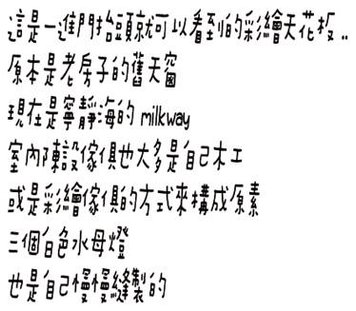 這是一進門抬頭就可以看到的彩繪天花板..
原本是老房子的舊天窗
現在是寧靜海的 milkway
室內陳設傢俱也大多是自己木工
或是彩繪傢俱的方式來構成原素
三個白色水母燈
也是自己慢慢縫製的